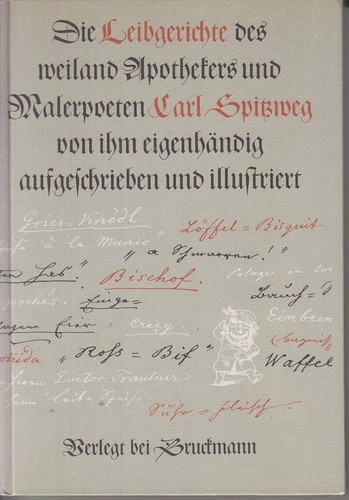 Die Leibgerichte des
weiland Apothekers und
Malerpoeten Carl Spitzweg
von ihm eigenhändig
aufgeschrieben und illustriert
Gries=Knödl
Löffel=Bisquit
à la Munic
"a Schmarren!"
Bischof.
Potage au
pochés.
Einge=
Bauch=
Eier
Crecy.
Einbren
"Ross=Bif"
Waffel
Doctor Trautner
seine Leibspeise
Suhr=fleisch.
Verlegt bei Bruckmann